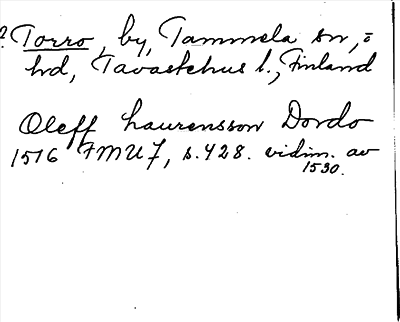 ? Torro, by, Tammela sn, ö
hd, Tavastehus l., Finland
Oleff Laurensson Dordo
1516 FMU 7, s. 428. vidim. av
1530.